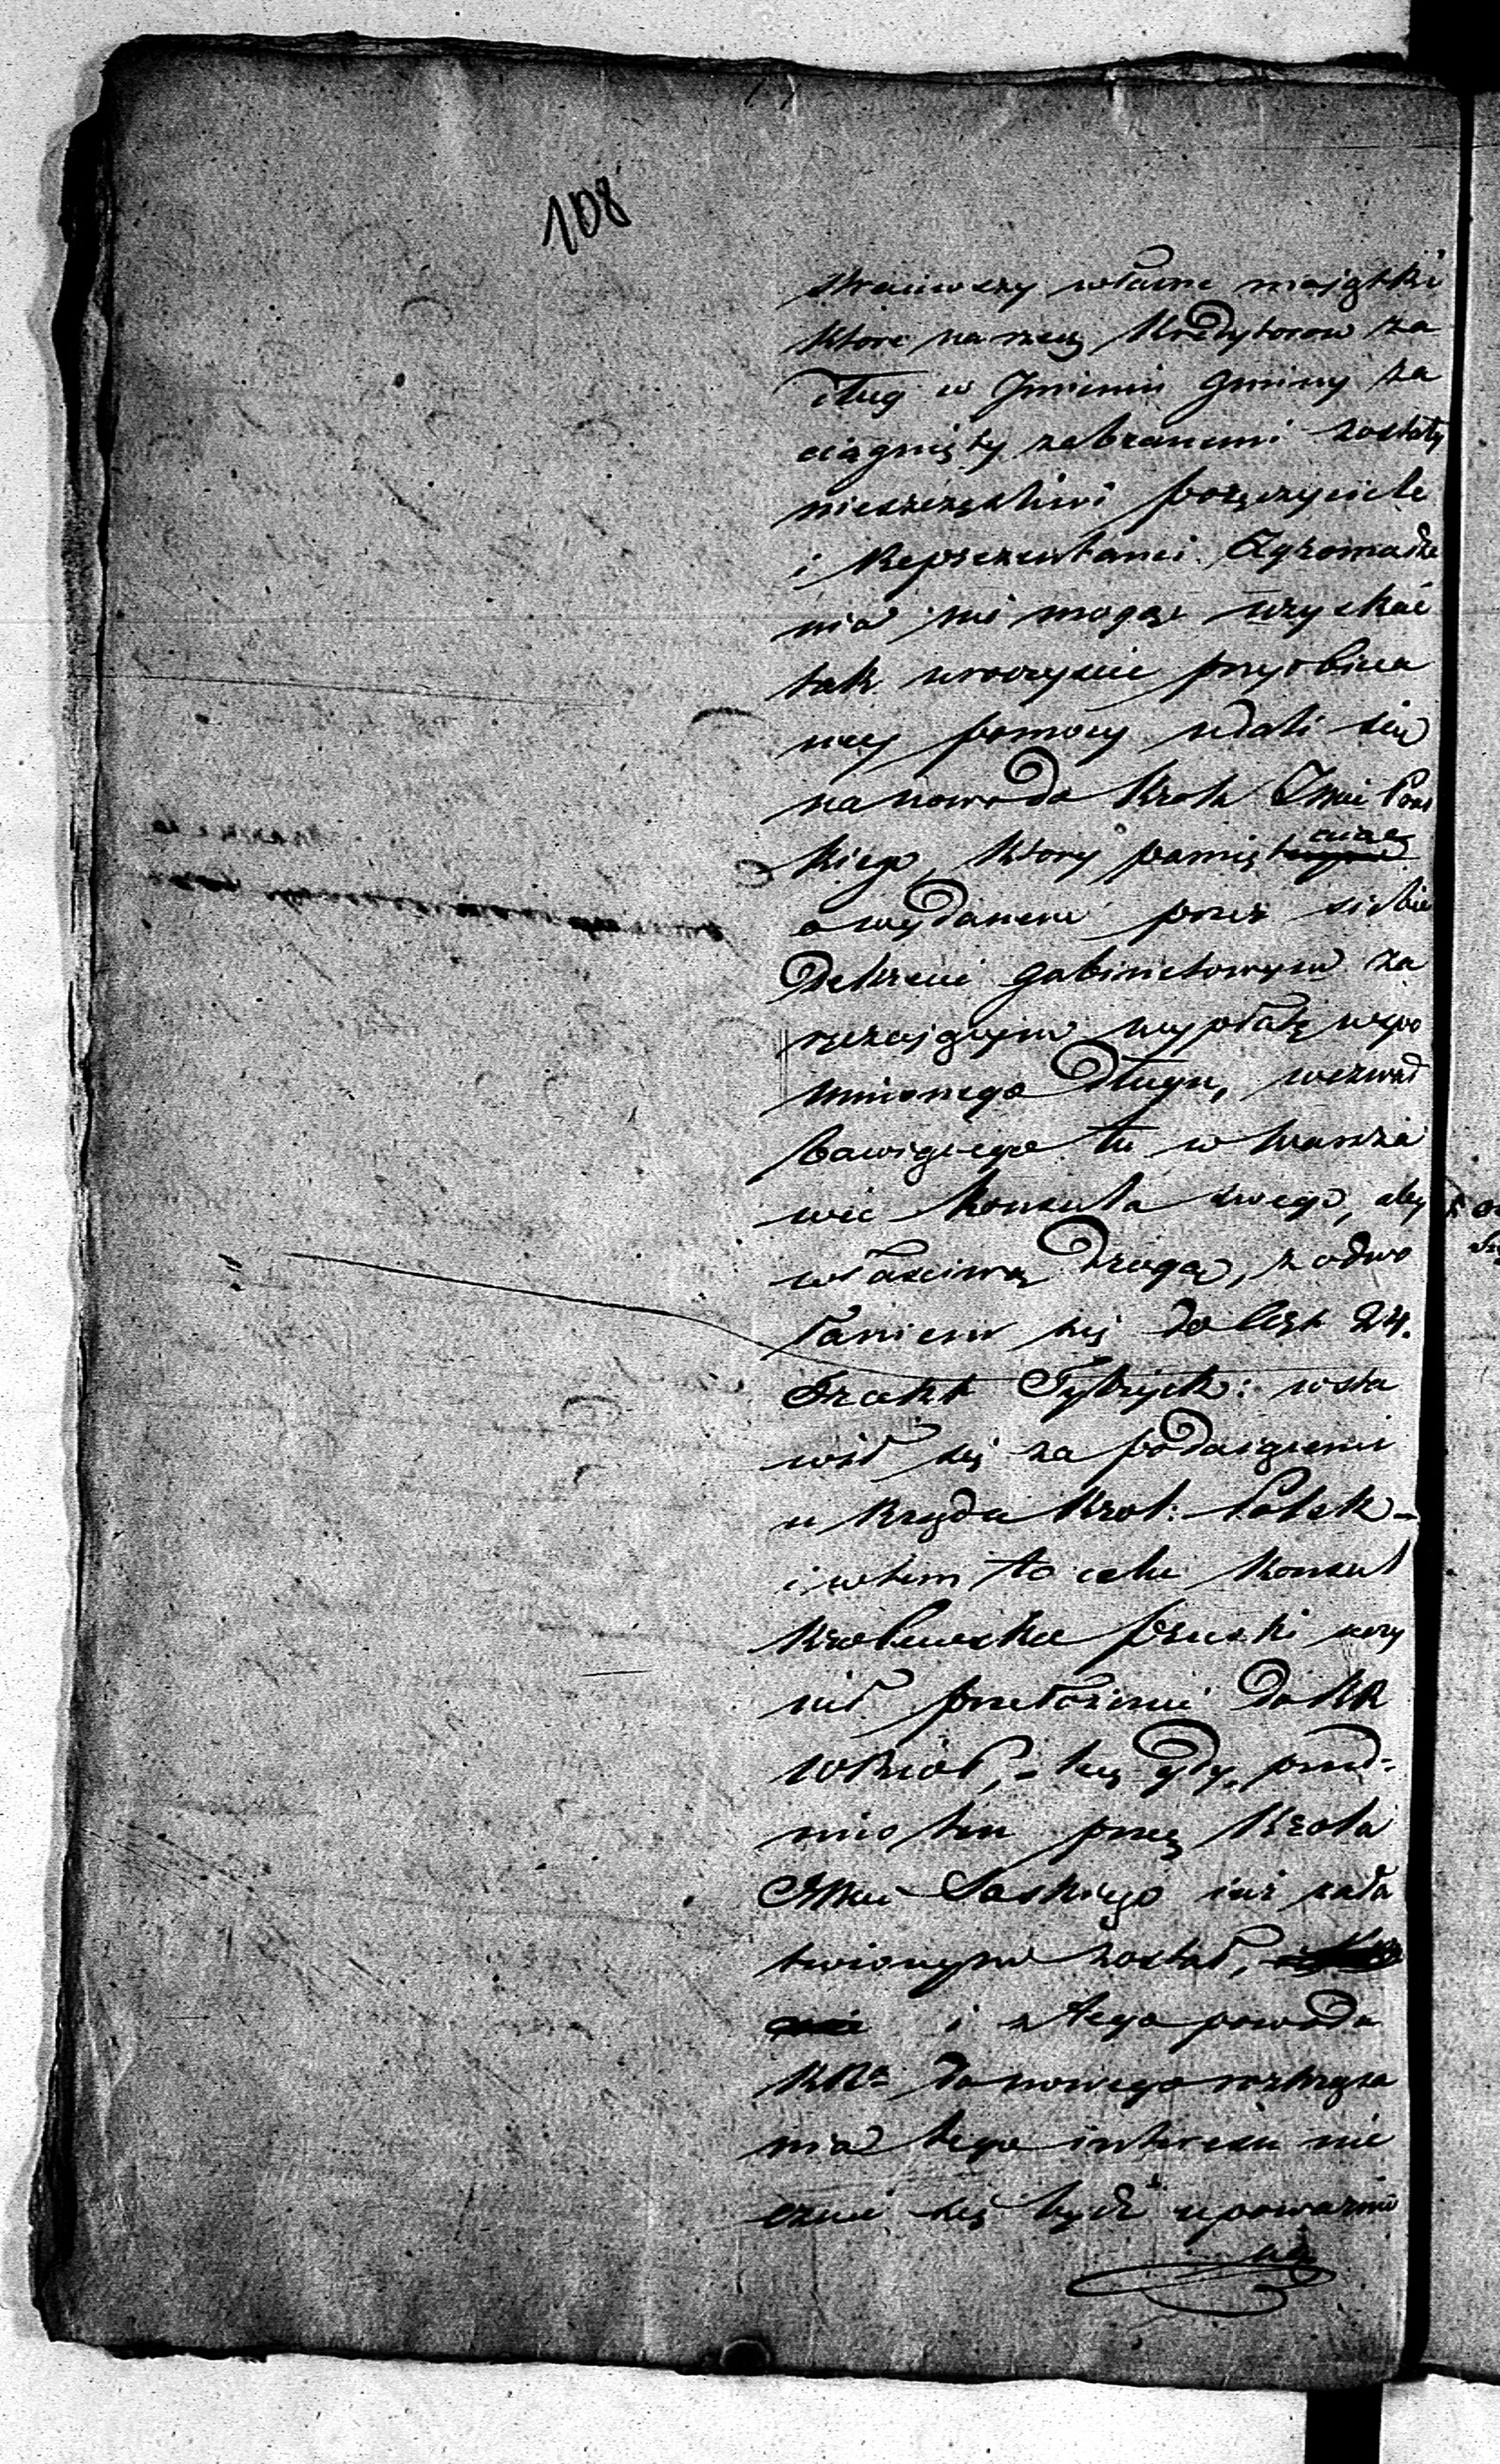 108
straciwszy własne majątki
które na rzecz Kredytorow za
dług w Jmieniu Gminy za
ciągnięty zabranemi zostały
nieszczęśliwi poręczyciele
i Reprezentanci Zgromadze
nia nie mogąc uzyskać
tak uroczyście przyobieca
ney pomocy udali się
na nowo do Krola Jmci Prus
kiego, ktory pamiętaiąc
o wydanem przez siebie
Dekrecie gabinetowym za
rządzaiącym wypłatę wspo
mnionego Długu, wezwał
bawiącego tu w Warsza
wie Konsula swego, aby
właściwą Drogą, z odwo
łaniem się do Część 24.
Trakt Tylżyck: wsta
wił się za podaiącemi
u Rządu Krol: Polsk-
i w tem to celu Konsul
Krolewsko Pruski uczy
nił przełożenie do KR
WRiOP, - lecz gdy przed-
miot ten przez Krola
Jmci Saskiego iuż zała
twionym został,
i z tego powodu
KRa do nowego roztrząsa
nia tego interesu nie
czuie się bydź upoważnio
ną